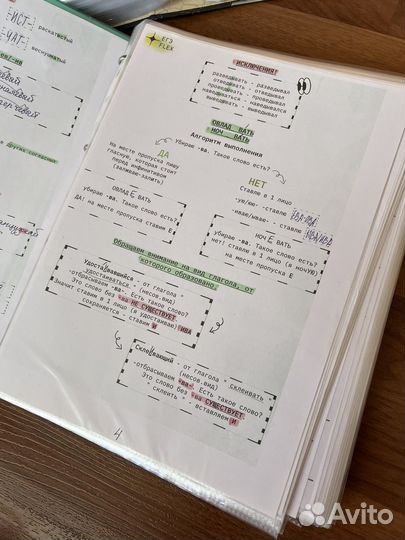 -ИСТ-
раскатистый
-ЧАТ-
веснушчатый
других согласных
4
ЕГЭ
FLEX
ИСКЛЮЧЕНИЯ!
разведывать - разведывал
отведывать - отведывал
проведывать - проведывал
наведываться - наведывался
выведывать - выведывал
ОВЛАД__ВАТЬ
НОЧ__ВАТЬ
Алгоритм выполнения
Убираю -ва. Такое слово есть?
ДА
На месте пропуска пишу
гласную, которая стоит
перед инфинитивом
(заливаю-залить)
НЕТ
Ставлю в 1 лицо
-ую/юю- -ставлю ОВА/ЕВА
-иваю/ываю- - ставлю ИВА/ЫВА
ОВЛАД Е ВАТЬ
убираю -ва. Такое слово есть?
ДА! на месте пропуска ставим Е
НОЧ Е ВАТЬ
убираю -ва. Такое слово есть?
нет! ставлю в 1 лицо (я ночУЮ)
на месте пропуска Е
Обращаем внимание на вид глагола, от
которого образовано.
УдостаИвавшийся - от глагола "
удостаиваться " (несов.вид)
-отбрасываем -ва-. Есть такое слово?
Это слово без -ва НЕ СУЩЕСТВУЕТ.
Значит ставим в 1 лицо (я удостаиваю) ИВА
сохраняется - ставим И
СклеИвавший - от глагола " склеивать "
(несов.вид)
-отбрасываем -ва-. Есть такое слово?
Это слово без -ва СУЩЕСТВУЕТ.
" склеить " - вставляем И
4
Avito